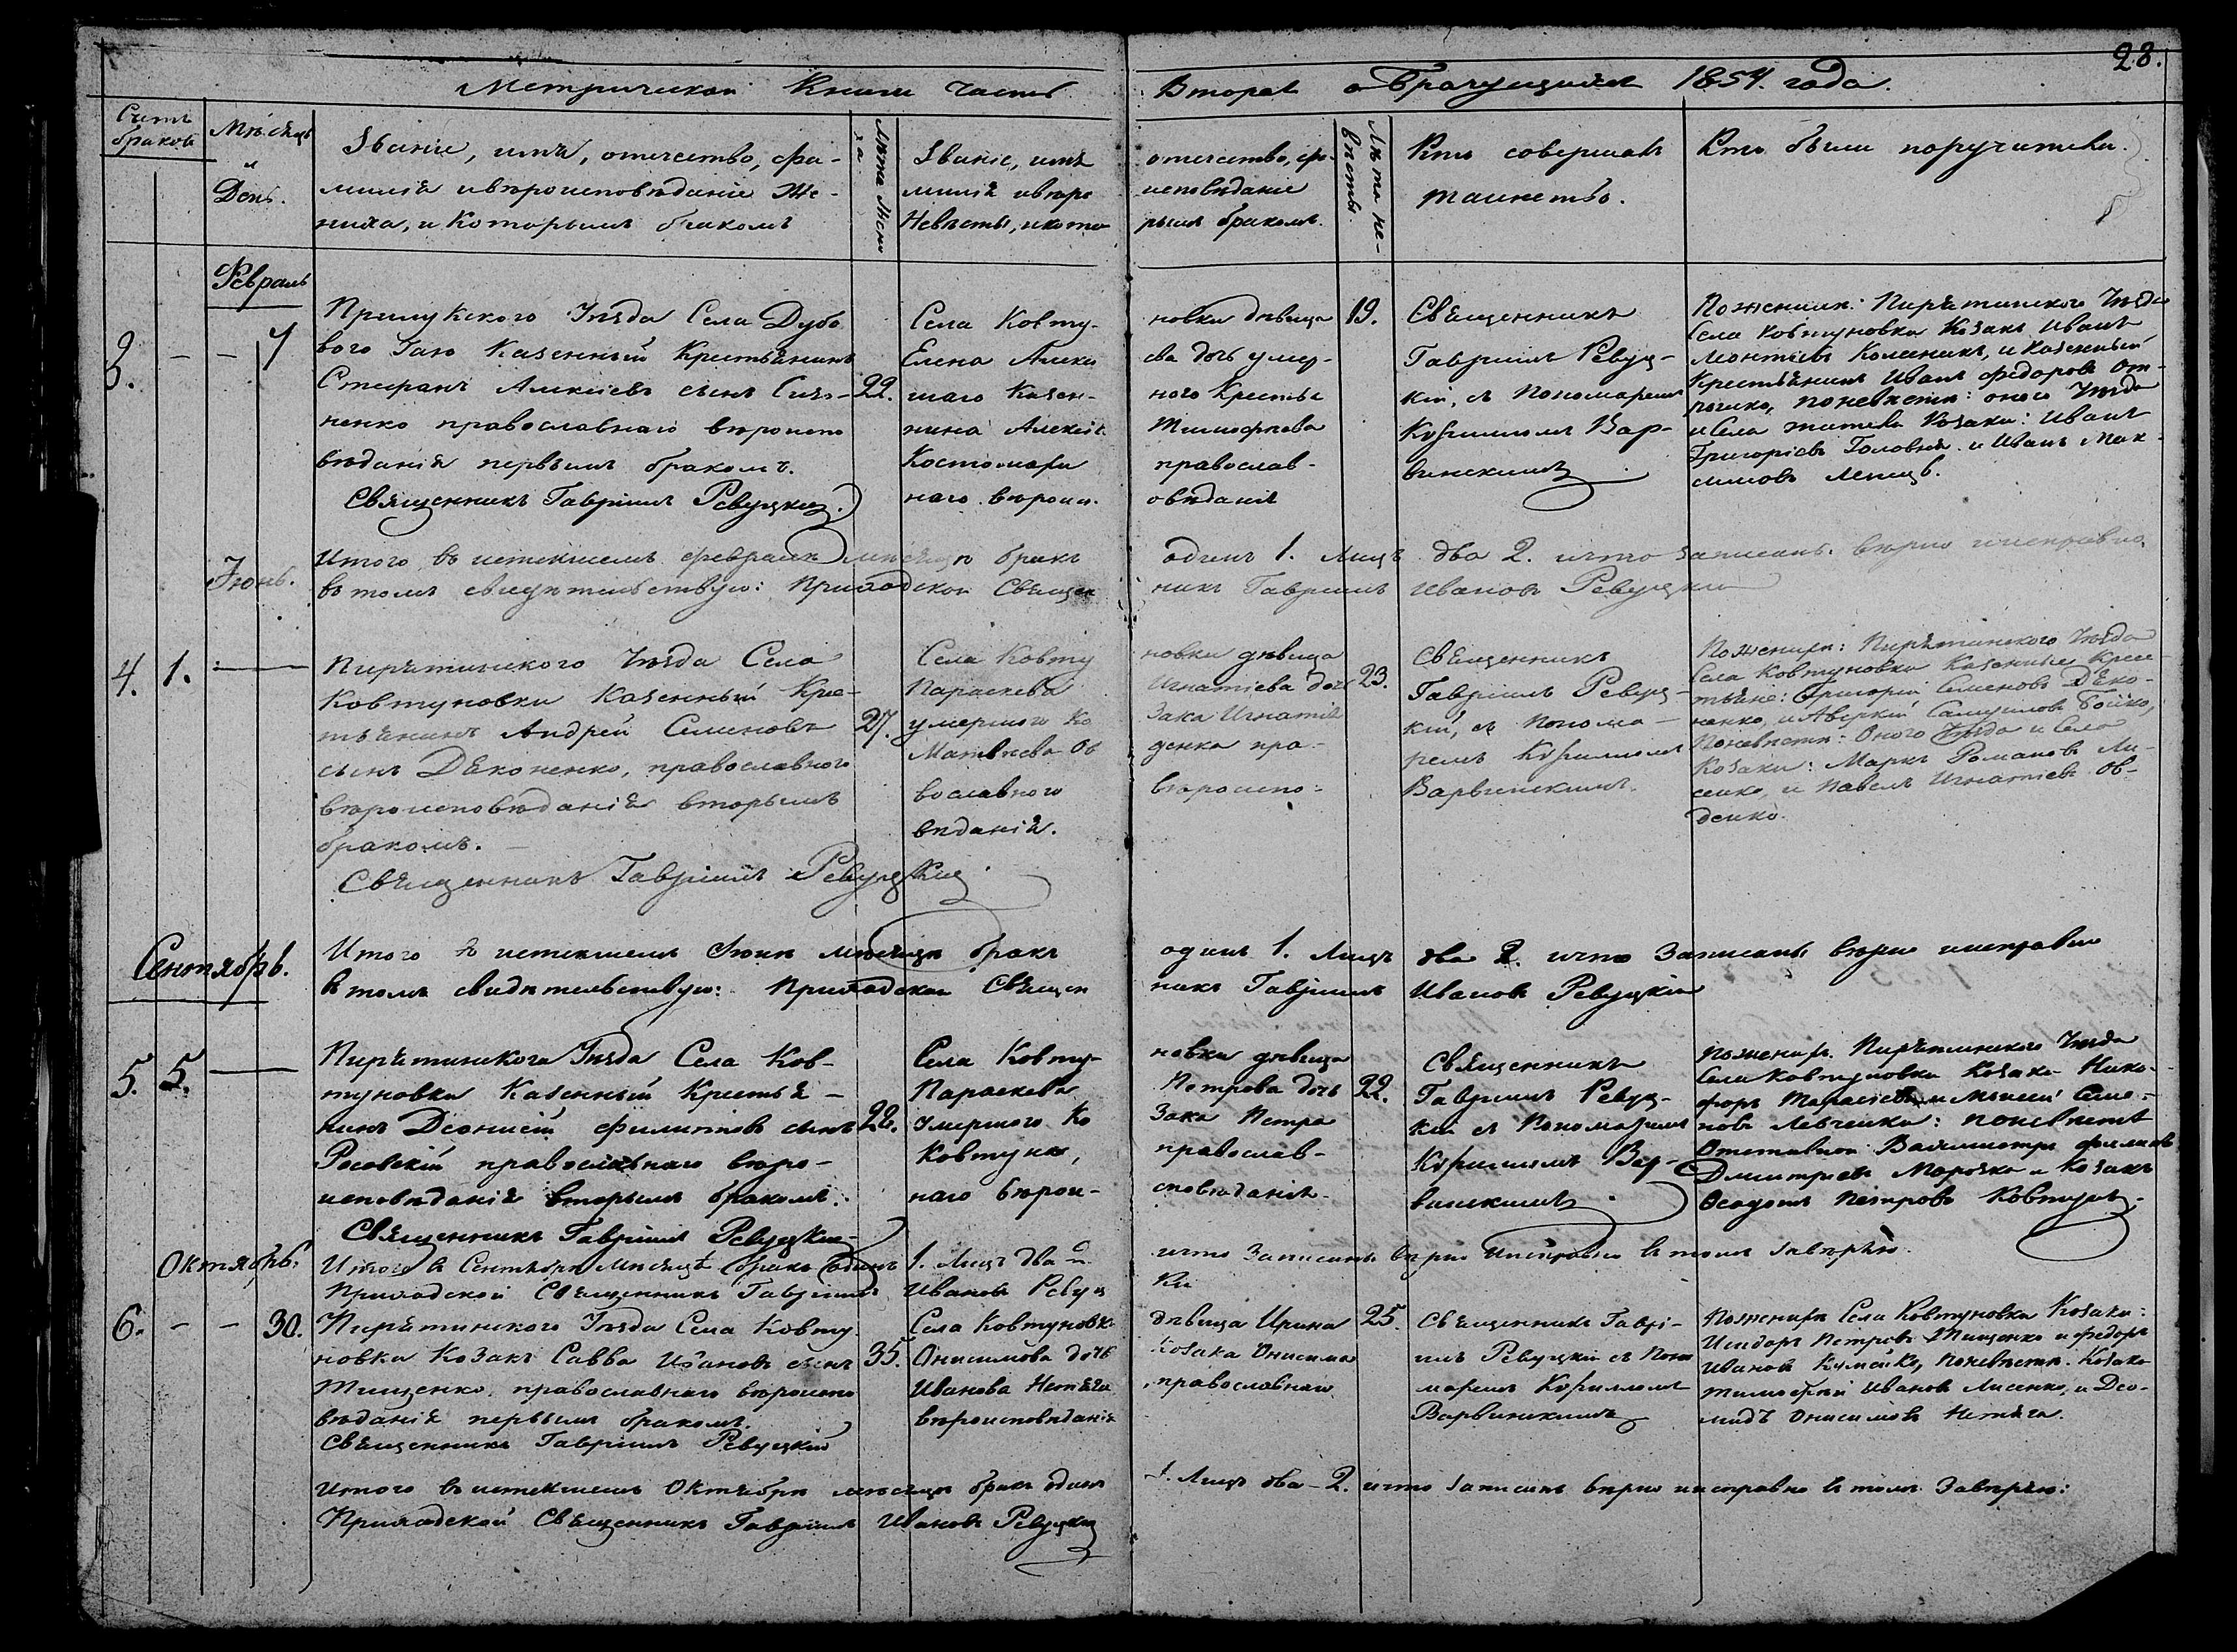 28.
Метрической Книги часть Вторая о Брачущихся 1854. года.
Счетъ браковъ
Мѣсяцъ и День.
Званіе, имя, отечество, фа-
милія и вѣроисповѣданіе Же-
ниха, и Которымъ бракомъ
Лѣта Жениха
Званіе, имя отечество, фа-
милія и вѣро исповѣданіе
Невѣсты, и кото рымъ бракомъ.
Лѣта не-
вѣсты
Кто совершалъ
таинство.
Кто были поручители.
Февраль
3. - - 7
Прилукского Уѣзда Села Дубо
вого Гаю Казенный Крестьянинъ
Стефанъ Алексіевъ сынъ
ненко православнаго вѣроиспо
вѣданія первымъ бракомъ.
Священникъ Гавріилъ Ревуцкій.
22.
Села Ковту- новки дѣвица
Елена Алексі ева дочь умер-
шаго Казен- ного Крестья
нина Алексія Тимофѣева
Костомари православ-
наго вѣроисп. овѣданія
19.
Священникъ
Гавріилъ Ревуц-
кій, съ Пономаремъ
Куриломъ Вар-
винскимъ
По женихѣ: Пирятинского Уѣзда
Села Ковтуновки Козакъ Иванъ
Коленикъ, и Казенный
Крестьянинъ Иванъ Федоровъ
по невѣстѣ: оного Уѣзда
и Села жители Козаки: Иванъ
Григоріевъ Головня и Иванъ Мак-
симовъ
Іюнь.
Итого въ истекшемъ февралѣ мѣсяцѣ бракъ одинъ 1. Лицъ два 2. и что записанъ вѣрно и исправно
въ томъ свидѣтельствую: Приходской Священ никъ Гавріилъ Ивановъ Ревуцкій
4. 1. -
Пирятинского Уѣзда Села
Ковтуновки Казенный Кре-
тьянинъ Андрей Семеновъ
сынъ Дяконенко, православного
вѣроисповѣданія вторымъ
бракомъ.
Священникъ Гавріилъ Ревуцкій
27.
Села Ковту новки дѣвица
Параскева Игнатіева дочь
умершого Ко зака Игнатія
Матвѣева Ов денка пра-
вославного вѣроиспо-
вѣданія.
23.
Священникъ
Гавріилъ Ревуц-
кій, съ Понома-
ремъ Куриломъ
Варвинскимъ.
По женихѣ: Пирятинского Уѣзда
Села Ковтуновки Казенные Крес-
тьяне: Григорій Семеновъ Дяко-
ненко, и Аверкій Самуиловъ Бойко,
По невѣстѣ: Оного Уѣзда и Села
Козаки: Маркъ Романовъ Ли-
сенко, и Павелъ Игнатіевъ Ов-
денко.
Сентябрь.
Итого въ истекшемъ Іюнѣ мѣсяцѣ бракъ одинъ 1. Лицъ два 2. и что Записанъ вѣрно и исправно
въ томъ свидѣтельствую: Приходской Священ никъ Гавріилъ Ивановъ Ревуцкій
5. 5. -
Пирятинского Уѣзда Села Ков-
туновки Казенный Крестья-
нинъ Діонисій Филиповъ сынъ
Росовскій православнаго вѣро-
исповѣданія вторымъ бракомъ.
Священникъ Гавріилъ Ревуцкій
22.
Села Ковту- новки дѣвица
Параскева Петрова дочь
умершого Ко зака Петра
Ковтуна, православ-
наго вѣрои- сповѣданія.
22.
Священникъ
Гавріилъ Ревуц-
кій съ Пономаремъ
Куриломъ Вар-
винскимъ
По женихѣ. Пирятинского Уѣзда
Села Ковтуновки Козаки Ники-
форъ Тарасіевъ и Семе-
новъ Левченки: по невѣстѣ
Отставной Вахмистръ
Дмитріевъ Марочко и Козакъ
Феодотъ Петровъ Ковтунъ.
Октябрь.
Итого въ Сентябрѣ Мѣсяцѣ бракъ одинъ 1. Лицъ два 2. и что Записанъ вѣрно и исправно въ томъ завѣряю.
Приходской Священникъ Гавріилъ Ивановъ Ревуц кій
6. - - 30.
Пирятинского Уѣзда Села Ковту
новки Козакъ Савва Ивановъ сынъ
Тищенко, православнаго вѣроиспо
вѣданія первымъ бракомъ.
Священникъ Гавріилъ Ревуцкій
35.
Села Ковтуновки дѣвица Ирина
Онисимова дочь Козака Онисима
Иванова Нетяга православнаго
вѣроисповѣданія
25.
Священникъ Гаврі-
илъ Ревуцкій съ Поно
маремъ Куриломъ
Варвинскимъ
По женихѣ Села Ковтуновки Козаки:
Исидоръ Петровъ Тищенко и Федоръ
Ивановъ по невѣстѣ. Козаки
Тимофѣй Ивановъ Лисенко, и Део-
мидъ Онисимовъ Нетяга.
Итого въ истекшемъ Октябрѣ мѣсяцѣ бракъ одинъ 1. Лицъ два - 2. и что записанъ вѣрно и исправно въ томъ Завѣряю:
Приходской Священникъ Гавріилъ Ивановъ Ревуцкій